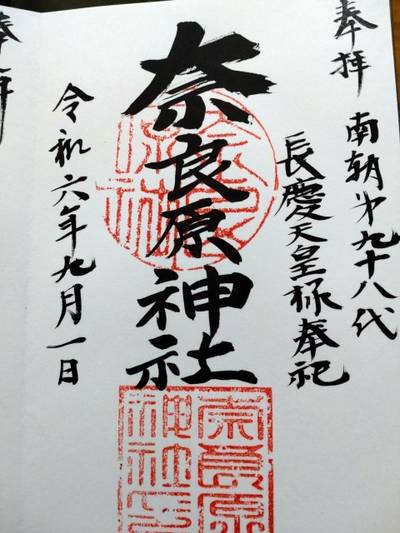 奉拝
南朝第九十八代
長慶天皇様奉祀
奈良原神社
令和六年九月一日
奈良原
神社